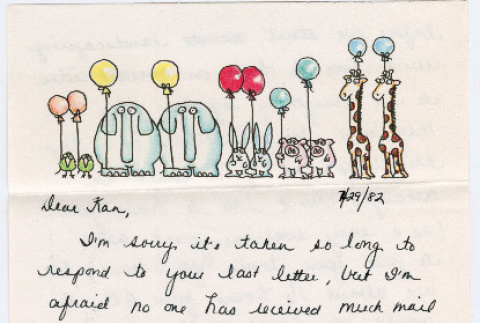 7/29/82
Dear Kan,
I'm sorry it's taken so long to
respond to your last letter, but I'm
afraid no one has received much mail